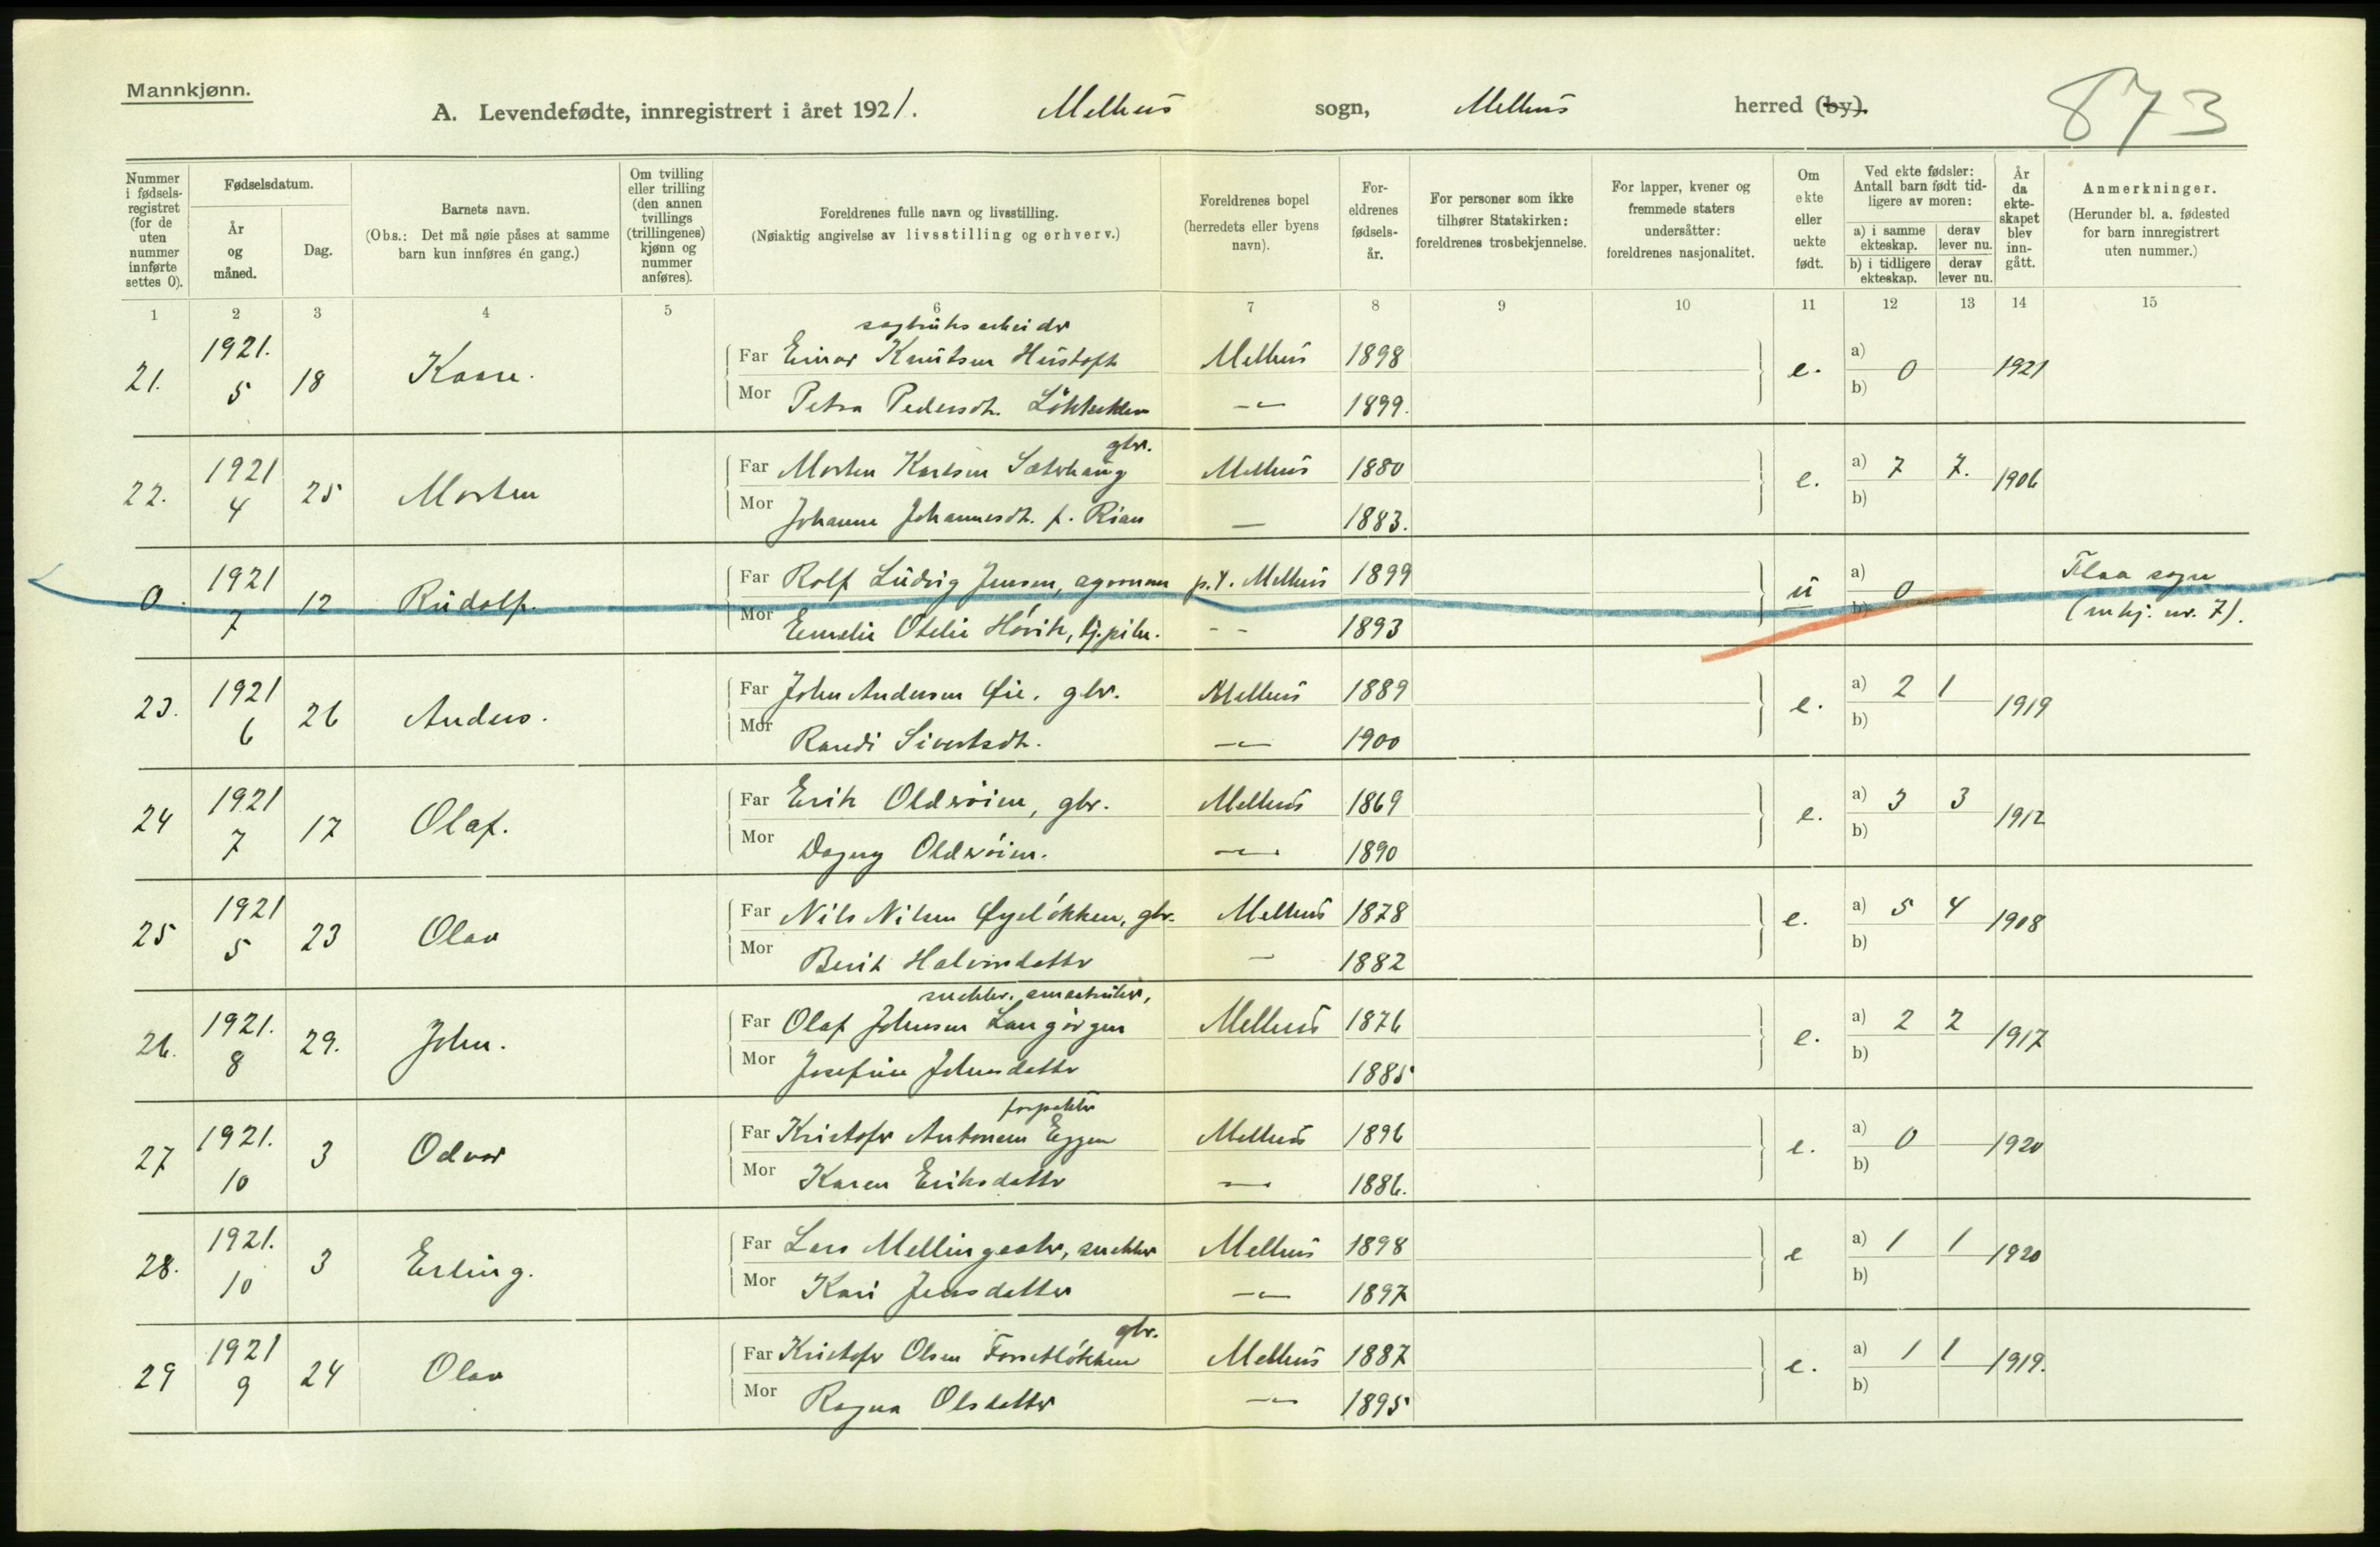 Mannkjønn.
A. Levendefødte, innregistrert i året 1921. Melhus sogn, Melhus herred (by).
873
Nummer i fødselsregistret (for de uten nummer innførte settes 0).
Fødselsdatum.
År og måned.
Dag.
Barnets navn.
(Obs.: Det må nøie påses at samme barn kun innføres én gang.)
Om tvilling eller trilling (den annen tvillings (trillingenes) kjønn og nummer anføres).
Foreldrenes fulle navn og livsstilling.
(Nøiaktig angivelse av livsstilling og erhverv.)
Foreldrenes bopel (herredets eller byens navn).
Foreldrenes fødselsår.
For personer som ikke tilhører Statskirken: foreldrenes trosbekjennelse.
For lapper, kvener og fremmede staters undersåtter: foreldrenes nasjonalitet.
Om ekte eller uekte født.
Ved ekte fødsler: Antall barn født tidligere av moren:
a) i samme ekteskap. derav lever nu.
b) i tidligere ekteskap. derav lever nu.
År da ekteskapet blev inngått.
Anmerkninger.
(Herunder bl. a. fødested for barn innregistrert uten nummer.)
1 2 3 4 5 6 7 8 9 10 11 12 13 14 15
sagbruksarbeider
21. 1921. 5 18 Kaare. Far Einar Knutsen Hustoft Melhus 1898 e. a) b) 0 1921
Mor Petra Pedersdt. -"- 1899.
gbr.
22. 1921 4 25 Morten Far Morten Karlsen Sæterhaug Melhus 1880 e. a) 7 7. b) 1906
Mor Johanne Johannesdt. f. Rian — 1883.
0. 1921 7 12 Rudolf. Far Rolf Ludvig Jensen, agronom p.t. Melhus 1899 u a) 0 b) Flaa sogn
Mor Emelie Otelie Hóvik, tj.pike. -- 1893 (mkj. nr. 7).
23. 1921 6 26 Anders. Far John Andersen Øie, gbr. Melhus 1889 e. a) 2 1 b) 1919
Mor Randi Sivertsdt. -"- 1900
24 1921 7 17 Olaf. Far Erik Oldervóien, gbr. Melhus 1869 e. a) 3 3 b) 1912
Mor Dagny Oldervóien. -"- 1890
25 1921 5 23 Olav Far Nils Nilsen Øyelókken, gbr. Melhus 1878 e. a) 5 4 b) 1908
Mor Berit Halvorsdatter — 1882
snekker, smaabruker,
26. 1921. 8 29. John. Far Olaf Johnsen Langórgen Melhus 1876 e. a) 2 2 b) 1917
Mor Josefine Johnsdatter 1885
forpakter
27 1921. 10 3 Odvar Far Kristofer Antonsen Eggen Melhus 1896 e. a) 0 b) 1920
Mor Karen Eriksdatter -"- 1886.
28. 1921. 10 3 Erling. Far Lars Mellingsæter, snekker Melhus 1898 e a) 1 1 b) 1920
Mor Kari Jensdatter -"- 1897
gbr.
29 1921 9 24 Olav Far Kristofer Olsen Forsetlókken Melhus 1887 e. a) 1 1 b) 1919.
Mor Ragna Olsdatter -"- 1895